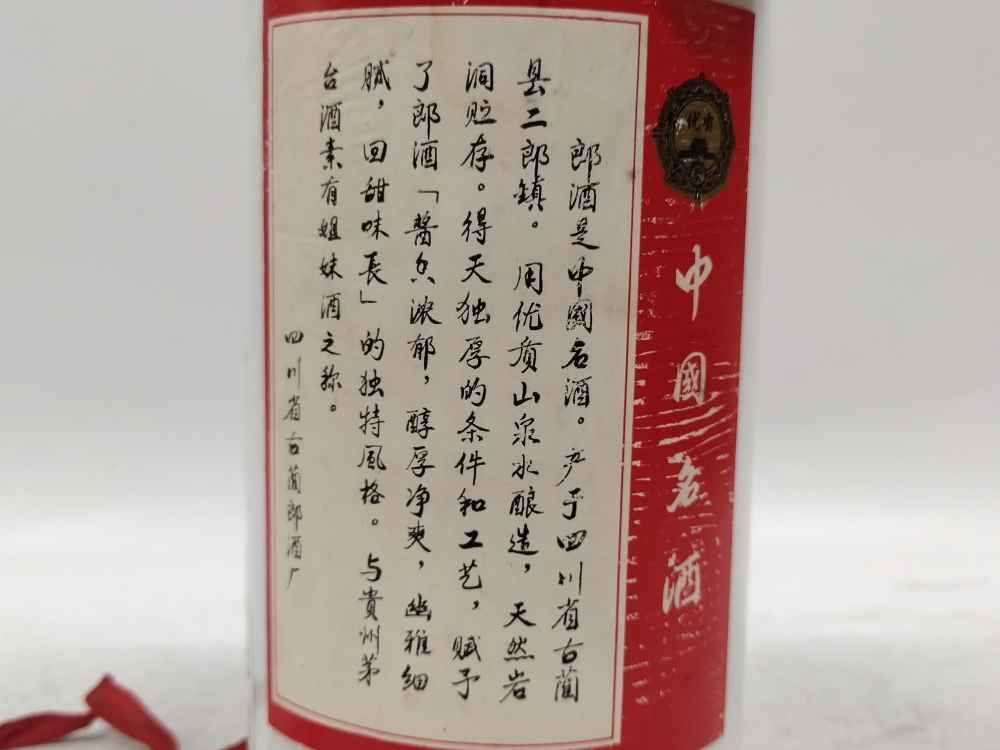 郎酒是中國名酒。产于四川省古藺
县二郎鎮。用优质山泉水酿造，天然岩
洞贮存。得天独厚的条件和工艺，赋予
了郎酒「醬香浓郁，醇厚净爽，幽雅细
腻，回甜味長」的独特風格。与貴州茅
台酒素有姐妹酒之称。
四川省古藺郎酒厂
中國名酒